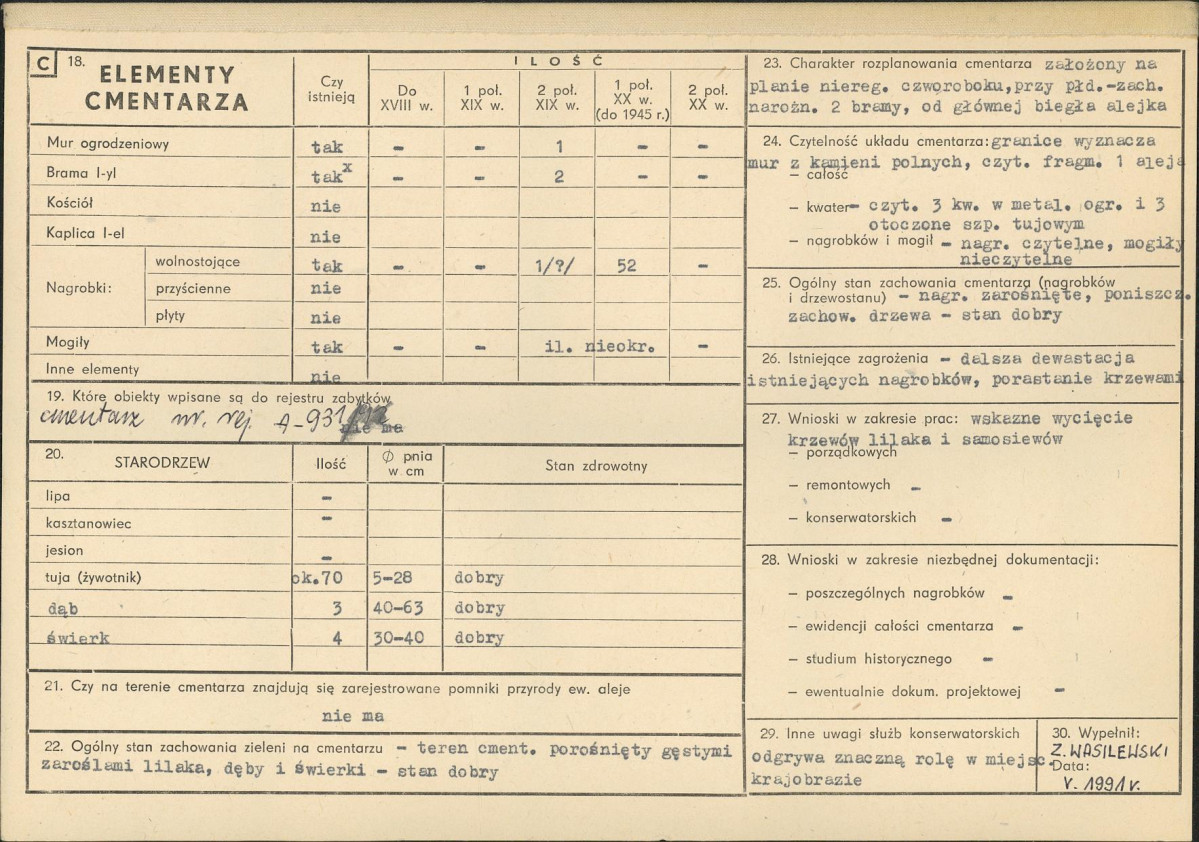 C 18. ELEMENTY CMENTARZA
Czy istnieją
ILOŚĆ
Do XVIII w.
1 poł. XIX w.
2 poł. XIX w.
1 poł. XX w. (do 1945 r.)
2 poł. XX w.
Mur ogrodzeniowy tak – – 1 – –
Brama I-yl tak x – – 2 – –
Kościół nie
Kaplica I-el nie
Nagrobki:
wolnostojące tak – – 1/?/ 52 –
przyścienne nie
płyty nie
Mogiły tak – – il. nieokr. –
Inne elementy nie
19. Które obiekty wpisane są do rejestru zabytków
cmentarz nr. rej. A-931
nie ma
20. STARODRZEW Ilość Ø pnia w cm Stan zdrowotny
lipa –
kasztanowiec –
jesion –
tuja (żywotnik) ok.70 5–28 dobry
dąb 3 40–63 dobry
świerk 4 30–40 dobry
21. Czy na terenie cmentarza znajdują się zarejestrowane pomniki przyrody ew. aleje
nie ma
22. Ogólny stan zachowania zieleni na cmentarzu – teren cment. porośnięty gęstymi
zaroślami lilaka, dęby i świerki – stan dobry
23. Charakter rozplanowania cmentarza założony na
planie niereg. czworoboku,przy płd.-zach.
narożn. 2 bramy, od głównej biegła alejka
24. Czytelność układu cmentarza: granice wyznacza
mur z kamieni polnych, czyt. fragm. 1 aleja
– całość
– kwater– czyt. 3 kw. w metal. ogr. i 3
otoczone szp. tujowym
– nagrobków i mogił – nagr. czytelne, mogiły
nieczytelne
25. Ogólny stan zachowania cmentarza (nagrobków
i drzewostanu) – nagr. zarośnięte, poniszcz.
zachow. drzewa – stan dobry
26. Istniejące zagrożenia – dalsza dewastacja
istniejących nagrobków, porastanie krzewami
27. Wnioski w zakresie prac: wskazne wycięcie
krzewów lilaka i samosiewów
– porządkowych
– remontowych –
– konserwatorskich –
28. Wnioski w zakresie niezbędnej dokumentacji:
– poszczególnych nagrobków –
– ewidencji całości cmentarza –
– studium historycznego –
– ewentualnie dokum. projektowej –
29. Inne uwagi służb konserwatorskich
odgrywa znaczną rolę w miejsc.
krajobrazie
30. Wypełnił:
Z. WASILEWSKI
Data:
V. 1991 r.